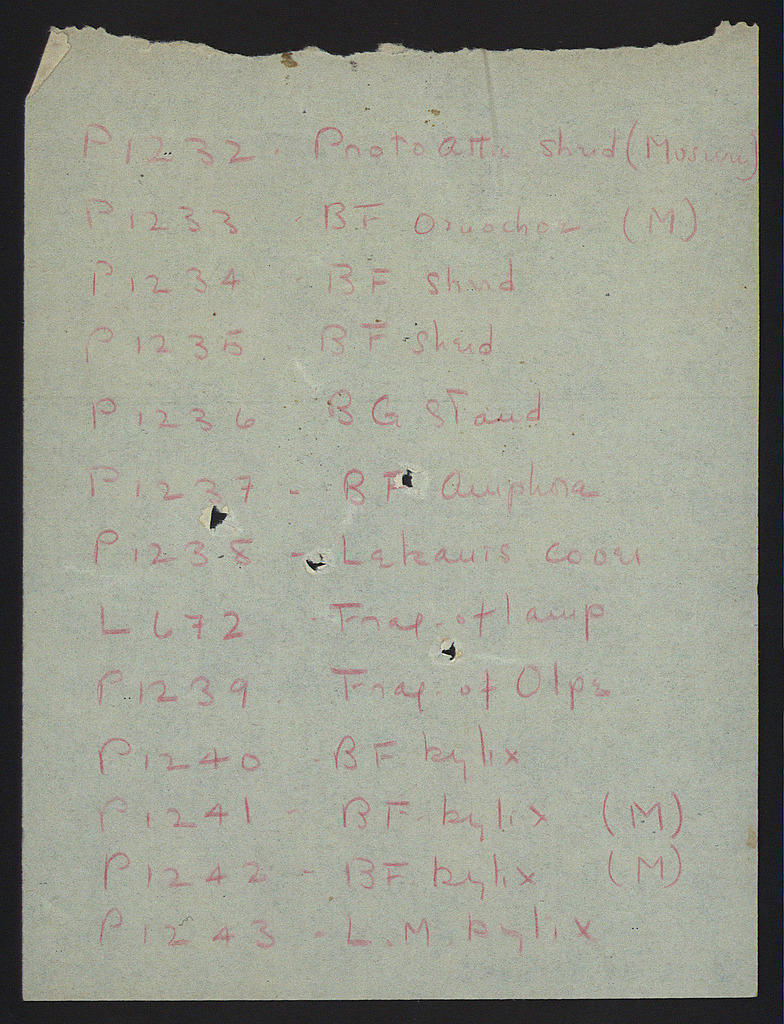 P 1232 . Protoattic sherd (Museum)
P 1233 - BF Oinochoe (M)
P 1234 - BF sherd
P 1235 BF sherd
P 1236 BG Stand
P 1237 - BF Amphora
P 1238 - Lekanis cover
L 672 - Frag. of lamp
P 1239 . Frag. of Olpe
P 1240 - BF kylix
P 1241 - BF kylix (M)
P 1242 - BF kylix (M)
P 1243 - L.M kylix